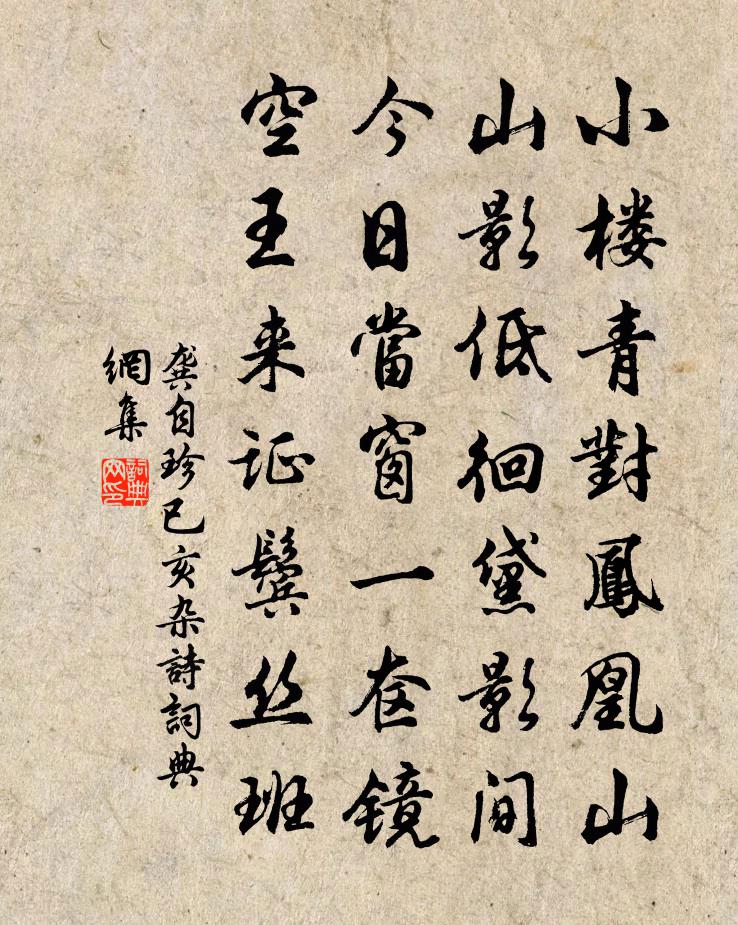 小楼青對鳳凰山
山影低徊黛影間
今日當窗一奁镜
空王来证鬓丝班
龔自珍己亥杂詩詞典
網集
詞典網印